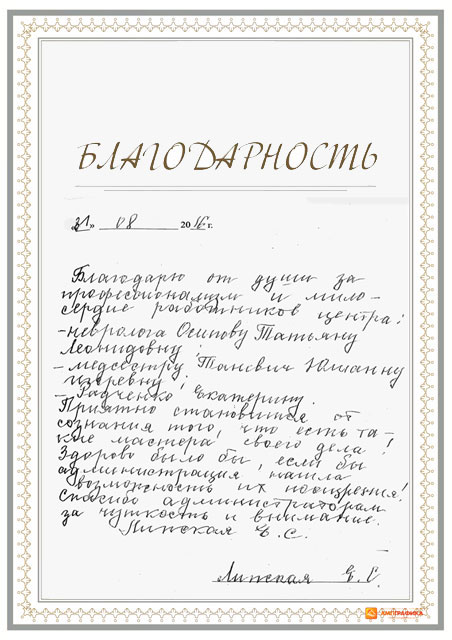 БЛАГОДАРНОСТЬ
«31» 08 2016 г.
Благодарю от души за
профессионализм и мило-
сердие работников центра:
- невролога Осипову Татьяну
Леонидовну
- медсестру Таневич Юлианну
Игоревну
- Радченко Екатерину.
Приятно становится от
сознания того, что есть та-
кие мастера своего дела!
Здорово было бы, если бы
администрация нашла
возможность их поощрения!
Спасибо администраторам
за чуткость и внимание.
Липская Е.С.
Липская Е.С.